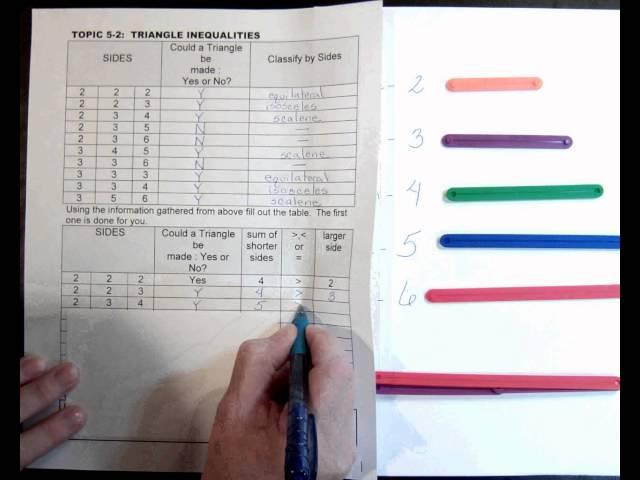 TOPIC 5-2: TRIANGLE INEQUALITIES
SIDES Could a Triangle be made : Yes or No? Classify by Sides
2 2 2 Y equilateral
2 2 3 Y isosceles
2 3 4 Y scalene
2 3 5 N —
2 3 6 N —
3 4 5 Y scalene
3 3 6 N —
3 3 3 Y equilateral
3 3 4 Y isosceles
3 5 6 Y scalene
Using the information gathered from above fill out the table. The first
one is done for you.
SIDES Could a Triangle be made : Yes or No? sum of shorter sides >,< or = larger side
2 2 2 Yes 4 > 2
2 2 3 Y 4 > 3
2 3 4 Y 5 >
- 2
- 3
- 4
- 5
- 6